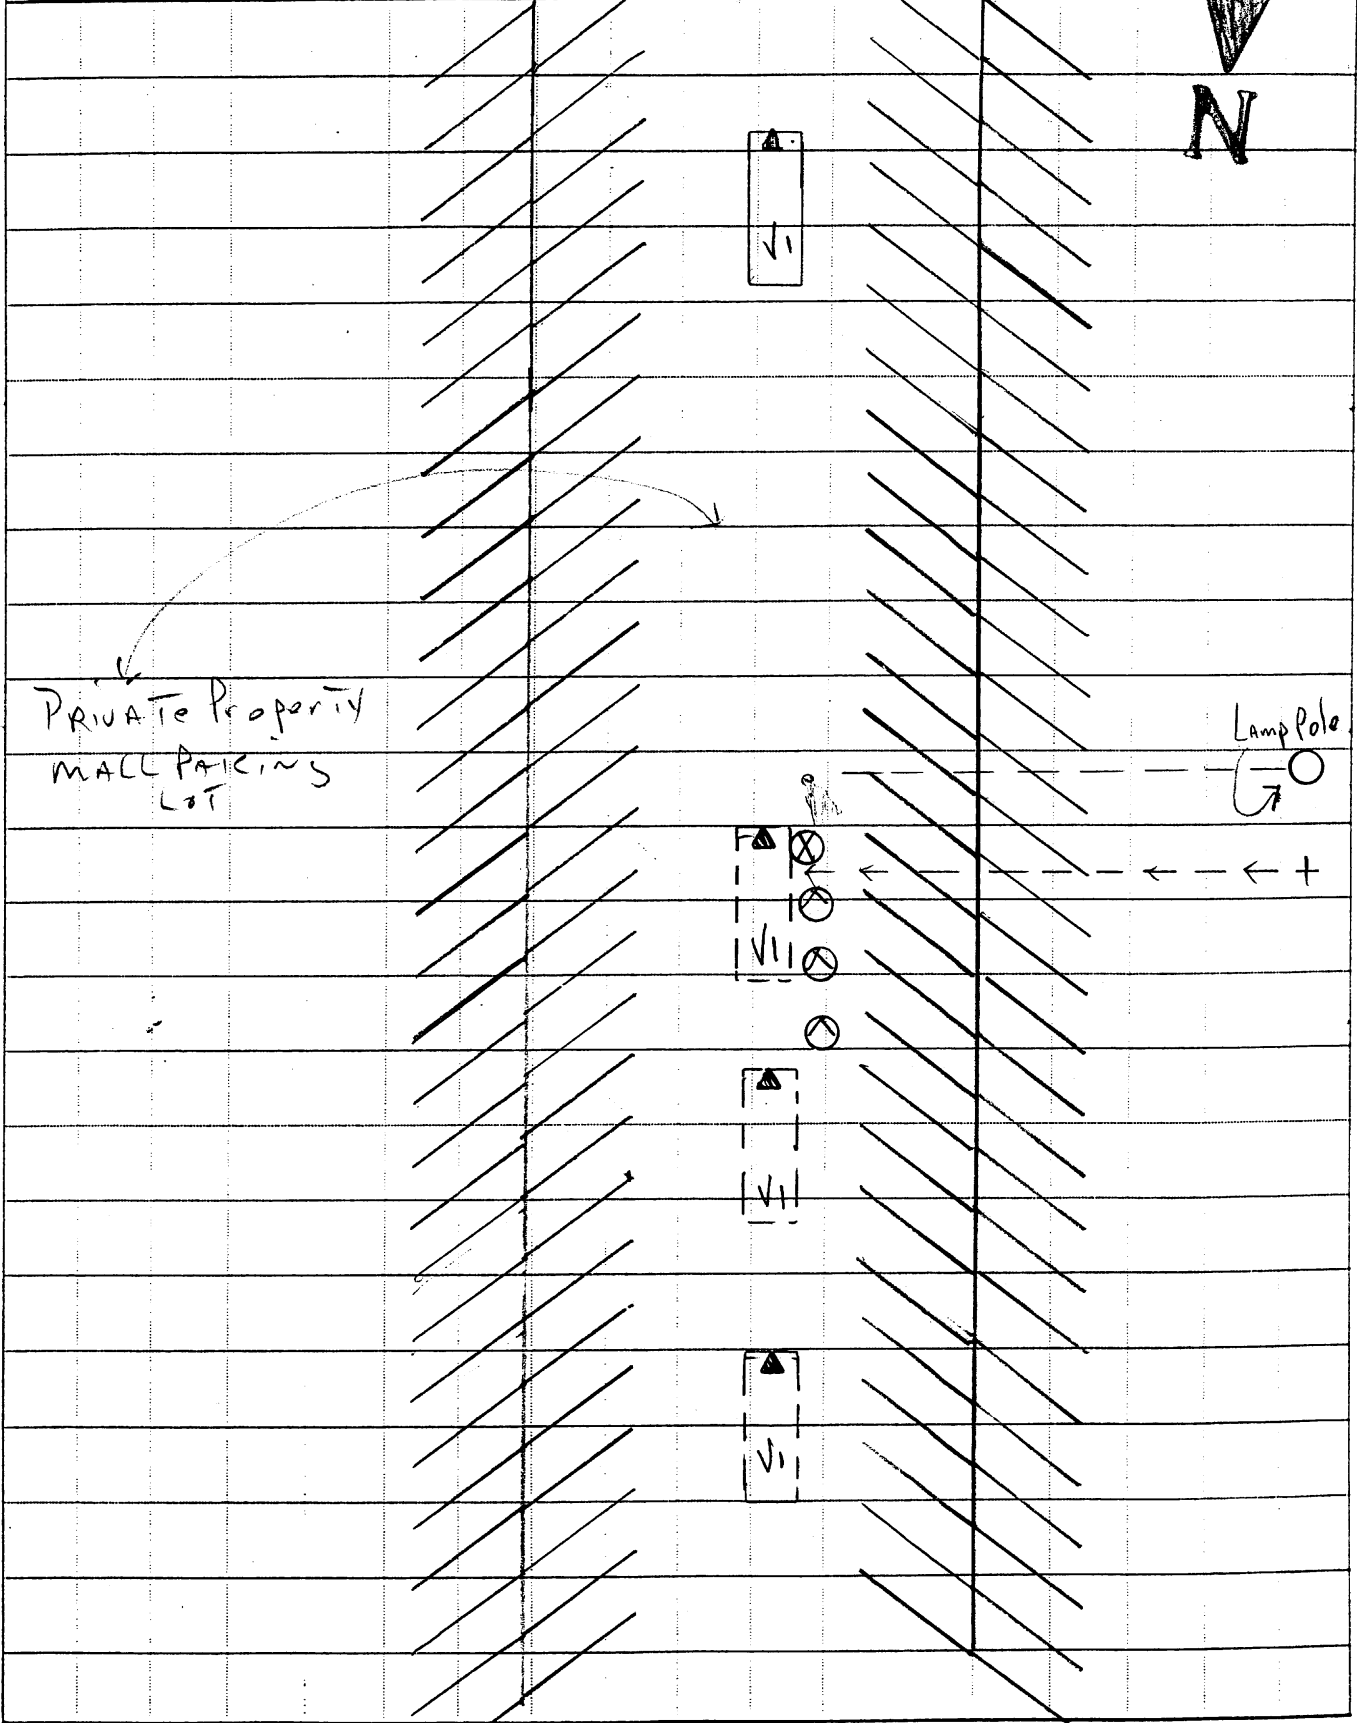 N
V1
PRIVATE Property
MALL PARKING
LOT
Lamp Pole
V1
V1
V1